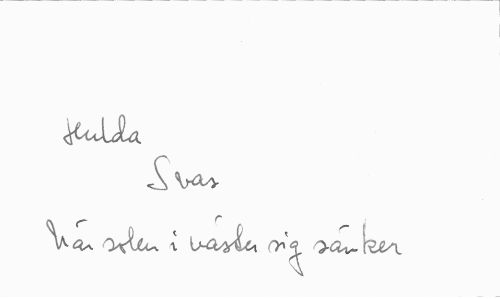 Hulda
Svas
När solen i väster sig sänker